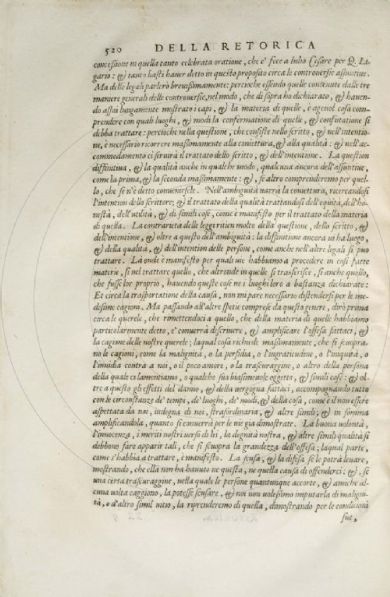 520 DELLA RETORICA
concessione in quella tanto celebrata oratione, che e' fece a Iulio Cesare per Q. Li-
gario: & tanto basti haver detto in questo proposito circa le controversie assontive.
Ma delle legali parlerò brevissimamente; perciochè essendo quelle contenute dalle tre
maniere generali delle controversie, nel modo, che di sopra ho dichiarato, & haven-
do assai lungamente mostrato i capi, & la materia di quelle, è agevol cosa com-
prendere con quali luoghi, & modi la confermatione di quelle, & confutatione si
debba trattare: percioche nella questione, che consiste nello scritto, & nell'intentio-
ne, è necessario ricorrere massimamente alla coniettura, & alla qualità: & nell'ac-
commodamento ci servirà il trattato dello scritto, & dell'intentione. La question
diffinitiva, & la qualità anche in qualche modo, qual'ancora dell'assontive,
come la prima, & la seconda massimamente: &, se altro comprendemmo per quel-
lo, che s'è detto convenirsele. Nell'ambiguità varrà la coniettura, ricercandosi
l'intention dello scrittore; & il trattato della qualità trattandosi dell'equità, dell'ho-
nestà, dell'utilità, & di simili cose, come è manifesto per il trattato della materia
di quella. La contrarietà delle leggi ritien molto della questione, dello scritto, &
dell'intentione, & oltre a questo dell'ambiguità: la diffinitione ancora vi ha luogo,
& della qualità, & dell'intention delle persone, come anche nell'altre legali si può
trattare. La onde è manifesto per qual via habbiamo a procedere in così fatte
materie, si nel trattare quello, che altronde in quelle si trasferisce, si anche quello,
che fusse lor proprio, havendo queste cose ne i luoghi loro a bastanza dichiarate:
Et circa la trasportatione della causa, non mi pare necessario distendersi per le me-
desime cagioni. Ma passando all'altre spetie comprese da questo genere, dirò prima
circa le querele, che rimettendoci a quello, che della materia di quelle habbiamo
particolarmente detto, e' converrà descrivere, & amplificare l'offesa fattaci, &
la cagione delle nostre querele; laqual cosa richiede massimamente, che si scuopra-
no le cagioni, come la malignità, o la perfidia, o l'ingratitudine, o l'iniquità, o
l'invidia contra a noi, o il poco amore, o la trascuraggine, o altro della persona
della quale ci lamentiamo, o qualche sua biasimevole oggetto, & simili cose: & ol-
tre a questo gli effetti del danno, & della vergogna fattaci, accompagnando tutto
con le circonstanze de' tempi, de' luoghi, de' modi, & della cosa, come è il non essere
aspettata da noi, indegna di noi, strasordinaria, & altre simili; & in somma
amplificandola, quanto si converrà per le vie già dimostrate. La buona volontà,
l'innocenza, i meriti nostri verso di lei, la dignità nostra, & altre simili qualità si
debbono fare apparir tali, che si scuopra la grandezza dell'offesa; laqual parte,
come s'habbia a trattare, è manifesto. La scusa, & la difesa se le potrà levare,
mostrando, che ella non ha havuto ne questa, ne quella causa di offenderci: &, se
una certa trascuraggine, nella quale le persone quantunque accorte, & amiche al-
cuna volta caggiono, la potesse scusare, & noi non volessimo imputarla di maligni-
tà, o d'altro simil vitio, la riprenderemo di quella, dimostrando per le condizioni
sue,